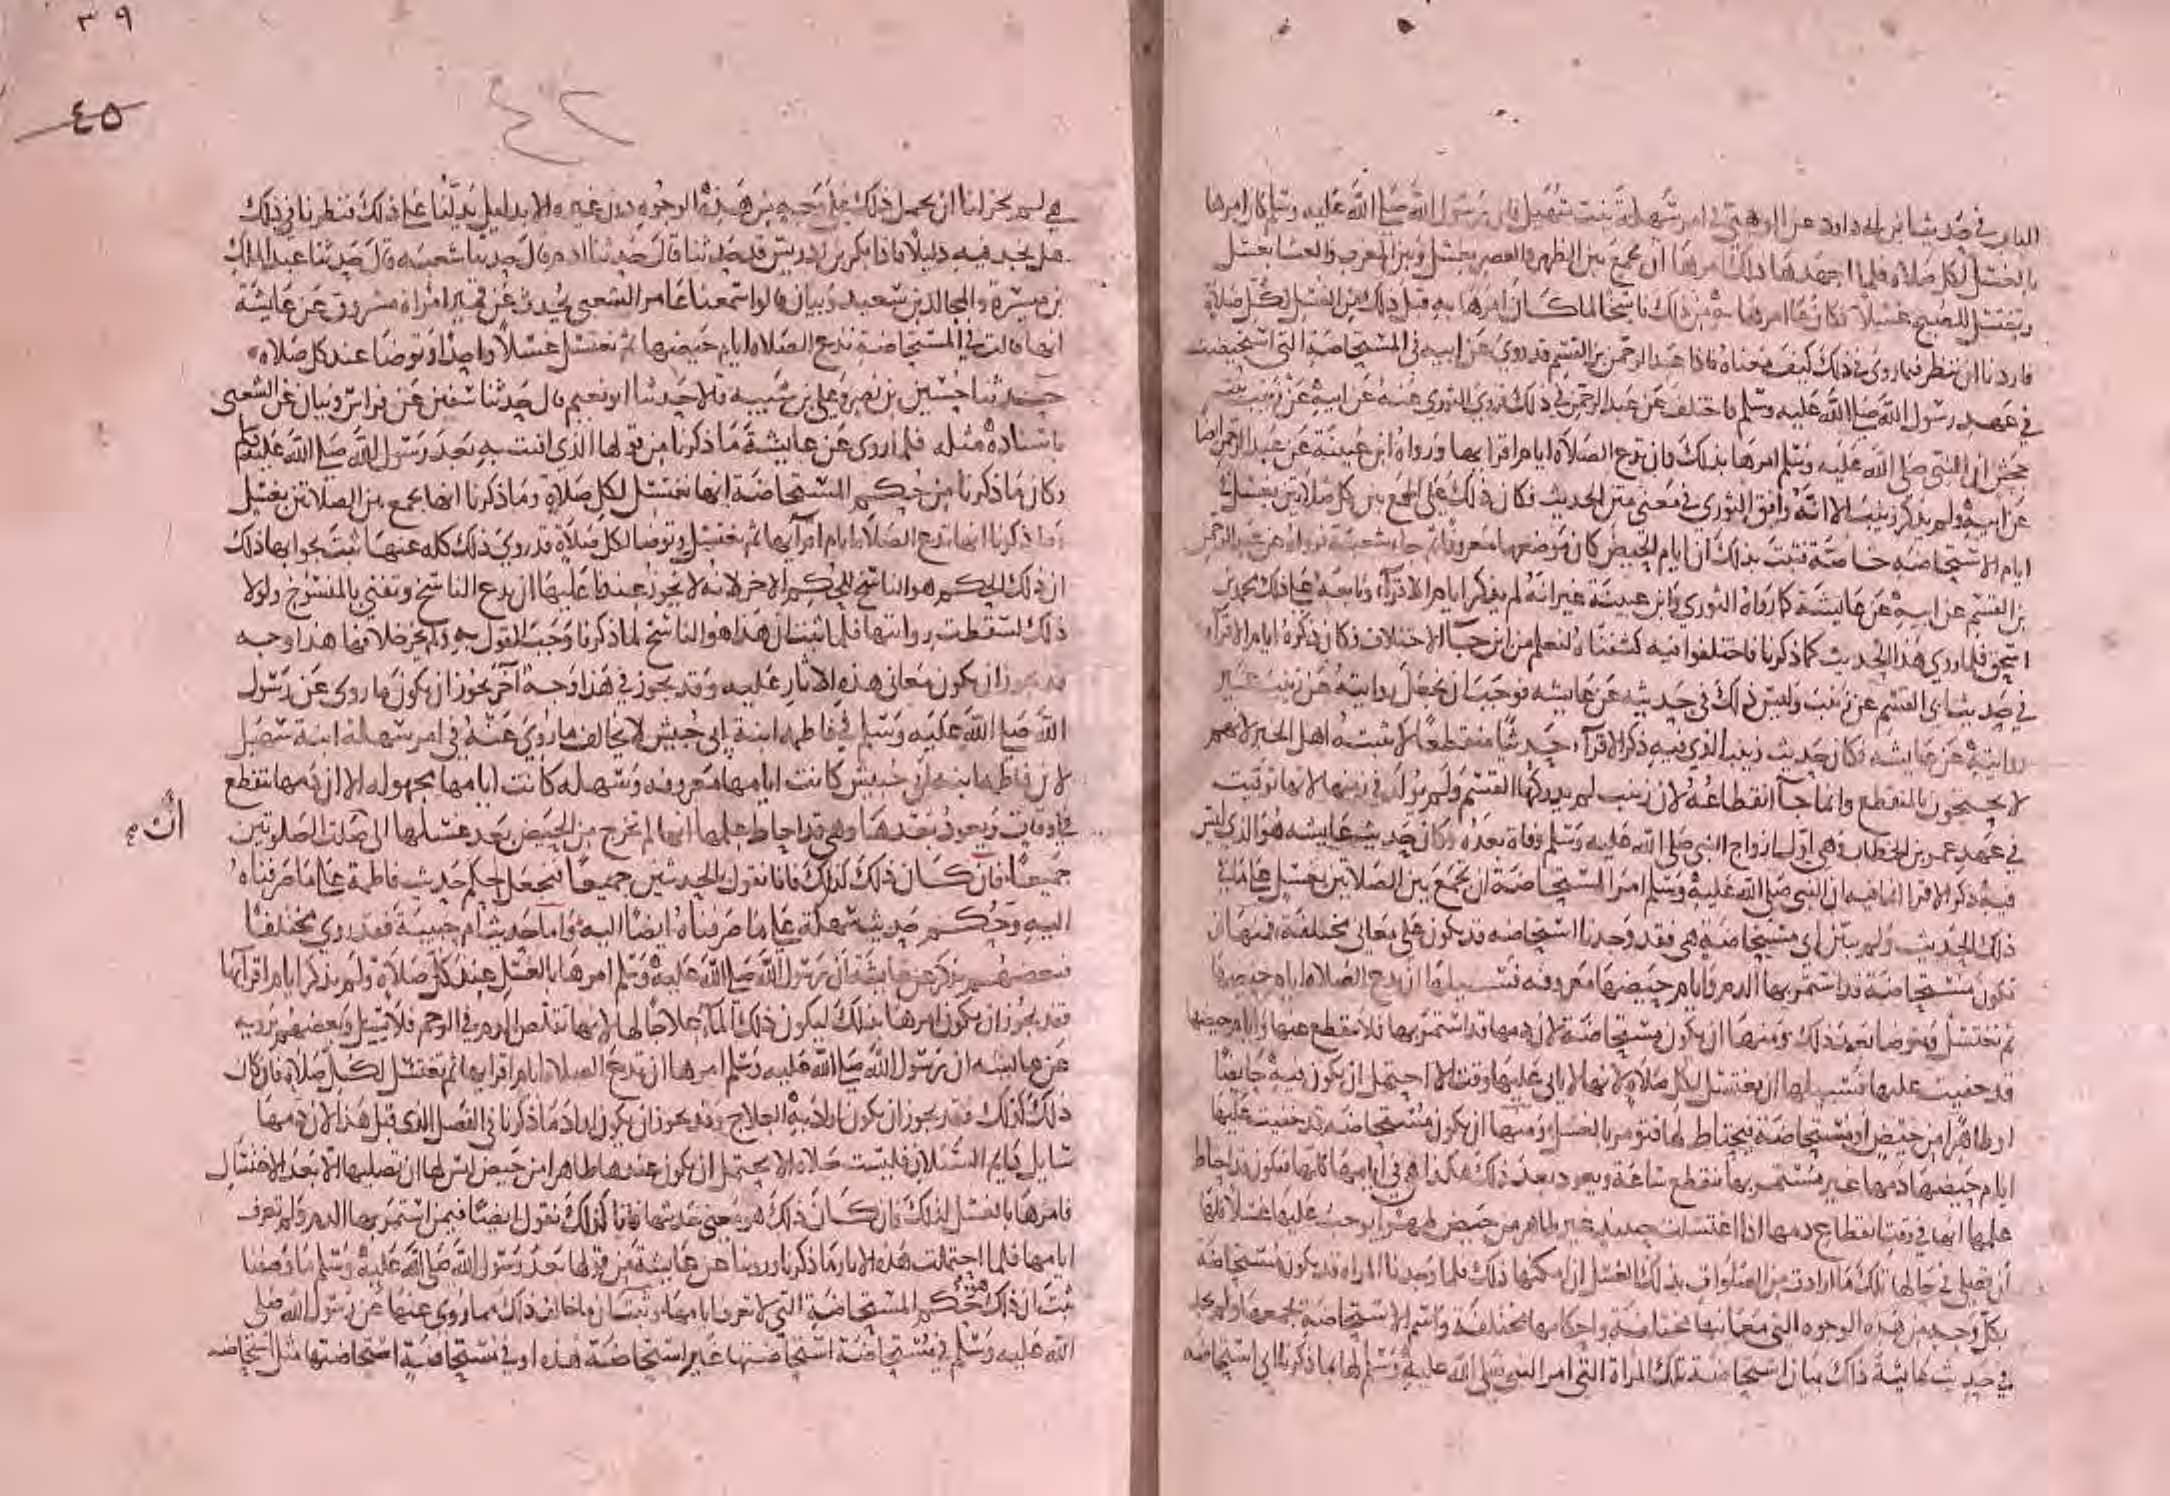 الباب في حديث ابن ابي داود عن الوهبي في امر سهلة بنت سهيل فان رسول الله صلى الله عليه وسلم كان امرها
بالغسل لكل صلاة فلما اجهدها ذلك امرها ان تجمع بين الظهر والعصر بغسل وبين المغرب والعشا بغسل
وتغتسل للصبح غسلا فكان ما امرها به من ذلك ناسخا لما كان امرها به قبل ذلك من الغسل لكل صلاة
فاردنا ان ننظر فيما روي في ذلك كيف معناه فاذا عبد الرحمن بن القسم قد روى عن ابيه في المستحاضة التي استحيضت
في عهد رسول الله صلى الله عليه وسلم فاختلف عن عبد الرحمن في ذلك فروى الثوري عنه عن ابيه عن زينب بنت
جحش ان النبي صلى الله عليه وسلم امرها بذلك وان تدع الصلاة ايام اقرائها ورواه ابن عيينة عن عبد الرحمن ايضا
عن ابيه ولم يذكر زينب الا انه وافق الثوري في معنى متن الحديث فكان ذلك على الجمع بين كل صلاتين بغسل في
ايام الاستحاضة خاصة فثبت بذلك ان ايام الحيض كان موضعها معروفا ثم جاء شعبة فرواه عن عبد الرحمن
بن القسم عن ابيه عن عايشة كما رواه الثوري وابن عيينة غير انه لم يذكر ايام الاقراء وتابعه على ذلك محمد بن
اسحق فلما روي هذا الحديث كما ذكرنا فاختلفوا فيه كشفناه لنعلم من اين جا الاختلاف فكان ذكر ايام الاقرا
في حديث القسم عن زينب وليس ذلك في حديثه عن عايشه فوجب ان يجعل روايته عن زينب غير
روايته عن عايشه فكان حديث زينب الذي فيه ذكر الاقراء حديثا منقطعا لا يثبته اهل الخبر لانهم
لا يحتجون بالمنقطع وانما جا انقطاعه لان زينب لم يدركها القسم ولم يولد في زمنها لانها توفيت
في عهد عمر بن الخطاب وهي اول ازواج النبي صلى الله عليه وسلم وفاة بعده وكان حديث عايشه هو الذي ليس
فيه ذكر الاقرا انما فيه ان النبي صلى الله عليه وسلم امر المستحاضة ان تجمع بين الصلاتين بغسل على ما في
ذلك الحديث ولم يبين اي مستحاضة هي فقد وجدنا استحاضه قد يكون على معاني مختلفة فمنها ان
تكون مستحاضة قد استمر بها الدم وايام حيضها معروفه فسبيلها ان تدع الصلاه ايام حيضها
ثم تغتسل وتتوضا بعد ذلك ومنها ان يكون مستحاضة لان دمها قد استمر بها فلا ينقطع عنها وايام حيضها
قد خفيت عليها فسبيلها ان تغتسل لكل صلاة لانها لا ياتي عليها وقت الا احتمل ان يكون فيه حائضا
او طاهرا من حيض او مستحاضة فيحتاط لها فتومر بالغسل ومنها ان يكون مستحاضه قد خفيت عليها
ايام حيضها دمها غير مستمر بها ينقطع ساعة ويعود بعد ذلك هكذا هي في ايامها كلها فيكون قد احاط
علمها انها في وقت انقطاع دمها اذا اغتسلت حينيذ غير طاهر من حيض طهرا يوجب عليها غسلا فلها
ان تصلي في حالها تلك ما ارادت من الصلوات بذلك الغسل ان امكنها ذلك فلما وجدنا المراه قد يكون مستحاضة
بكل وجه من هذه الوجوه التي معانيها مختلفة واحكامها مختلفة واسم الاستحاضة يجمعها ولم نجد
في حديث عايشة ذاك بيان استحاضة تلك المراة التي امر النبي صلى الله عليه وسلم لها بما ذكرنا اي استحاضه
٣٩
٤٥
٤٢
هي لم يجز لنا ان نحمل ذلك على وجه من هذه الوجوه دون غيره الا بدليل يدلنا على ذلك فنظرنا في ذلك
هل نجد فيه دليلا فاذا بكر بن ادريس قد حدثنا قال حدثنا ادم قال حدثنا شعبه قال حدثنا عبد الملك
بن ميسرة والمجالد بن سعيد وبيان قالوا سمعنا عامر الشعبي يحدث عن قمير امراة مسروق عن عايشة
انها قالت في المستحاضة تدع الصلاه ايام حيضها ثم تغتسل غسلا واحدا وتوضا عند كل صلاه
حدثنا حسين بن نصر وعلي بن شيبه قالا حدثنا ابو نعيم قال حدثنا سفين عن فراس وبيان عن الشعبي
باسناده مثله فلما روي عن عايشة ما ذكرنا من قولها الذي افتت به بعد رسول الله صلى الله عليه وسلم
وكان ما ذكرنا من حكم المستحاضة انها تغتسل لكل صلاة وما ذكرنا انها تجمع بين الصلاتين بغسل
وما ذكرنا انها تدع الصلاة ايام اقرائها ثم تغتسل وتوضا لكل صلاة قد روي ذلك كله عنها ثبت بجوابها ذلك
ان ذلك الحكم هو الناسخ للحكم الاخر لانه لا يجوز عندنا عليها ان تدع الناسخ وتفتي بالمنسوخ ولولا
ذلك لسقطت روايتها فلما ثبت ان هذا هو الناسخ لما ذكرنا وجب القول به ولم يجز خلافها هذا وجه
قد يجوز ان يكون معاني هذه الاثار عليه وقد يجوز في هذا وجه آخر يجوز ان يكون ما روي عن رسول
الله صلى الله عليه وسلم في فاطمه ابنة ابي حبيش لا يخالف ما روي عنه في امر سهلة ابنة سهيل
لان فاطمه ابنة ابي حبيش كانت ايامها معروفه وسهله كانت ايامها مجهوله الا ان دمها ينقطع
في اوقات ويعود بعدها وهي قد احاط علمها انها لم تخرج من الحيض بعد غسلها الى ان صلت الصلوتين
جميعا فان كان ذلك كذلك فانا نقول بالحديثين جميعا فنجعل حكم حديث فاطمة على ما صرفناه
اليه وحكم حديث سهلة على ما صرفناه ايضا اليه واما حديث ام حبيبة فقد روي مختلفا
فبعضهم يذكر عن عايشة ان رسول الله صلى الله عليه وسلم امرها بالغسل عند كل صلاة ولم يذكر ايام اقرآيها
فقد يجوز ان يكون امرها بذلك ليكون ذلك الماء علاجا لها لانها تقلص الدم في الرحم فلا يسيل وبعضهم يرويه
عن عايشه ان رسول الله صلى الله عليه وسلم امرها ان تدع الصلاه ايام اقرايها ثم تغتسل لكل صلاة فان كان
ذلك كذلك فقد يجوز ان يكون اراد به العلاج وقد يجوز ان يكون اراد ما ذكرنا في الفصل الذي قبل هذا لان دمها
سايل دايم السيلان فليست صلاه الا يحتمل ان يكون عندها طاهرا من حيض ليس لها ان تصليها الا بعد الاغتسال
فامرها بالغسل لذلك فان كان ذلك هو معنى حديثها فانا كذلك نقول ايضا فيمن استمر بها الدم ولم تعرف
ايامها فلما احتملت هذه الاثار ما ذكرنا وروينا عن عايشة من قولها بعد رسول الله صلى الله عليه وسلم ما وصفنا
ثبت ان ذلك حكم المستحاضة التي لا تعرف ايامها وثبت ان ما خالف ذلك مما روي عنها عن رسول الله صلى
الله عليه وسلم في مستحاضة استحاضتها غير استحاضة هذه او في مستحاضة استحاضتها مثل استحاضه